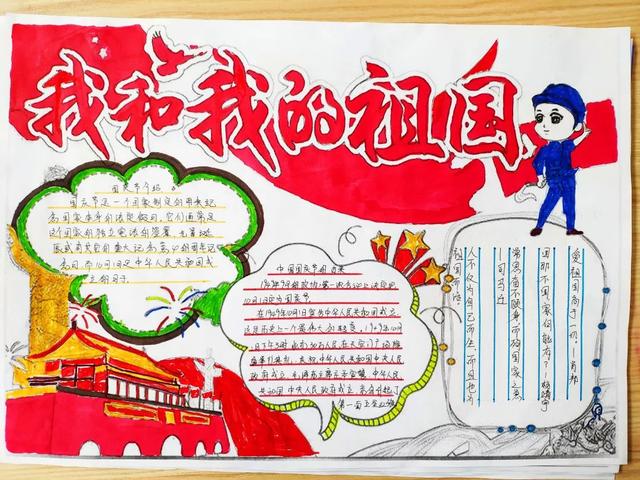 我和我的祖国
国庆节介绍
国庆节是一个国家制定的用来纪
念国家本身的法定假日,它们通常是
这个国家的独立、宪法的签署、元首诞
辰或其它有重大纪念意义的周年纪
念日,而10月1日是中华人民共和国成
立的日子。
中国国庆节由来
10月1日为国庆节。
在1949年10月1日宣告中华人民共和国成立,
这是历史上一个最伟大的转变,1949年10月
1日下午3时,北京30万人民,在天安门广场隆重
政府成立,毛泽东主席庄严宣告,中华人民
共和国中央人民政府成立,亲自升起了
第一面五星红旗
爱祖国高于一切。——肖邦
国即不国,家何能存?——杨靖宇
常思奋不顾身,而殉国家之急。
——司马迁
人不仅为自己而生,而且也为
祖国而活。